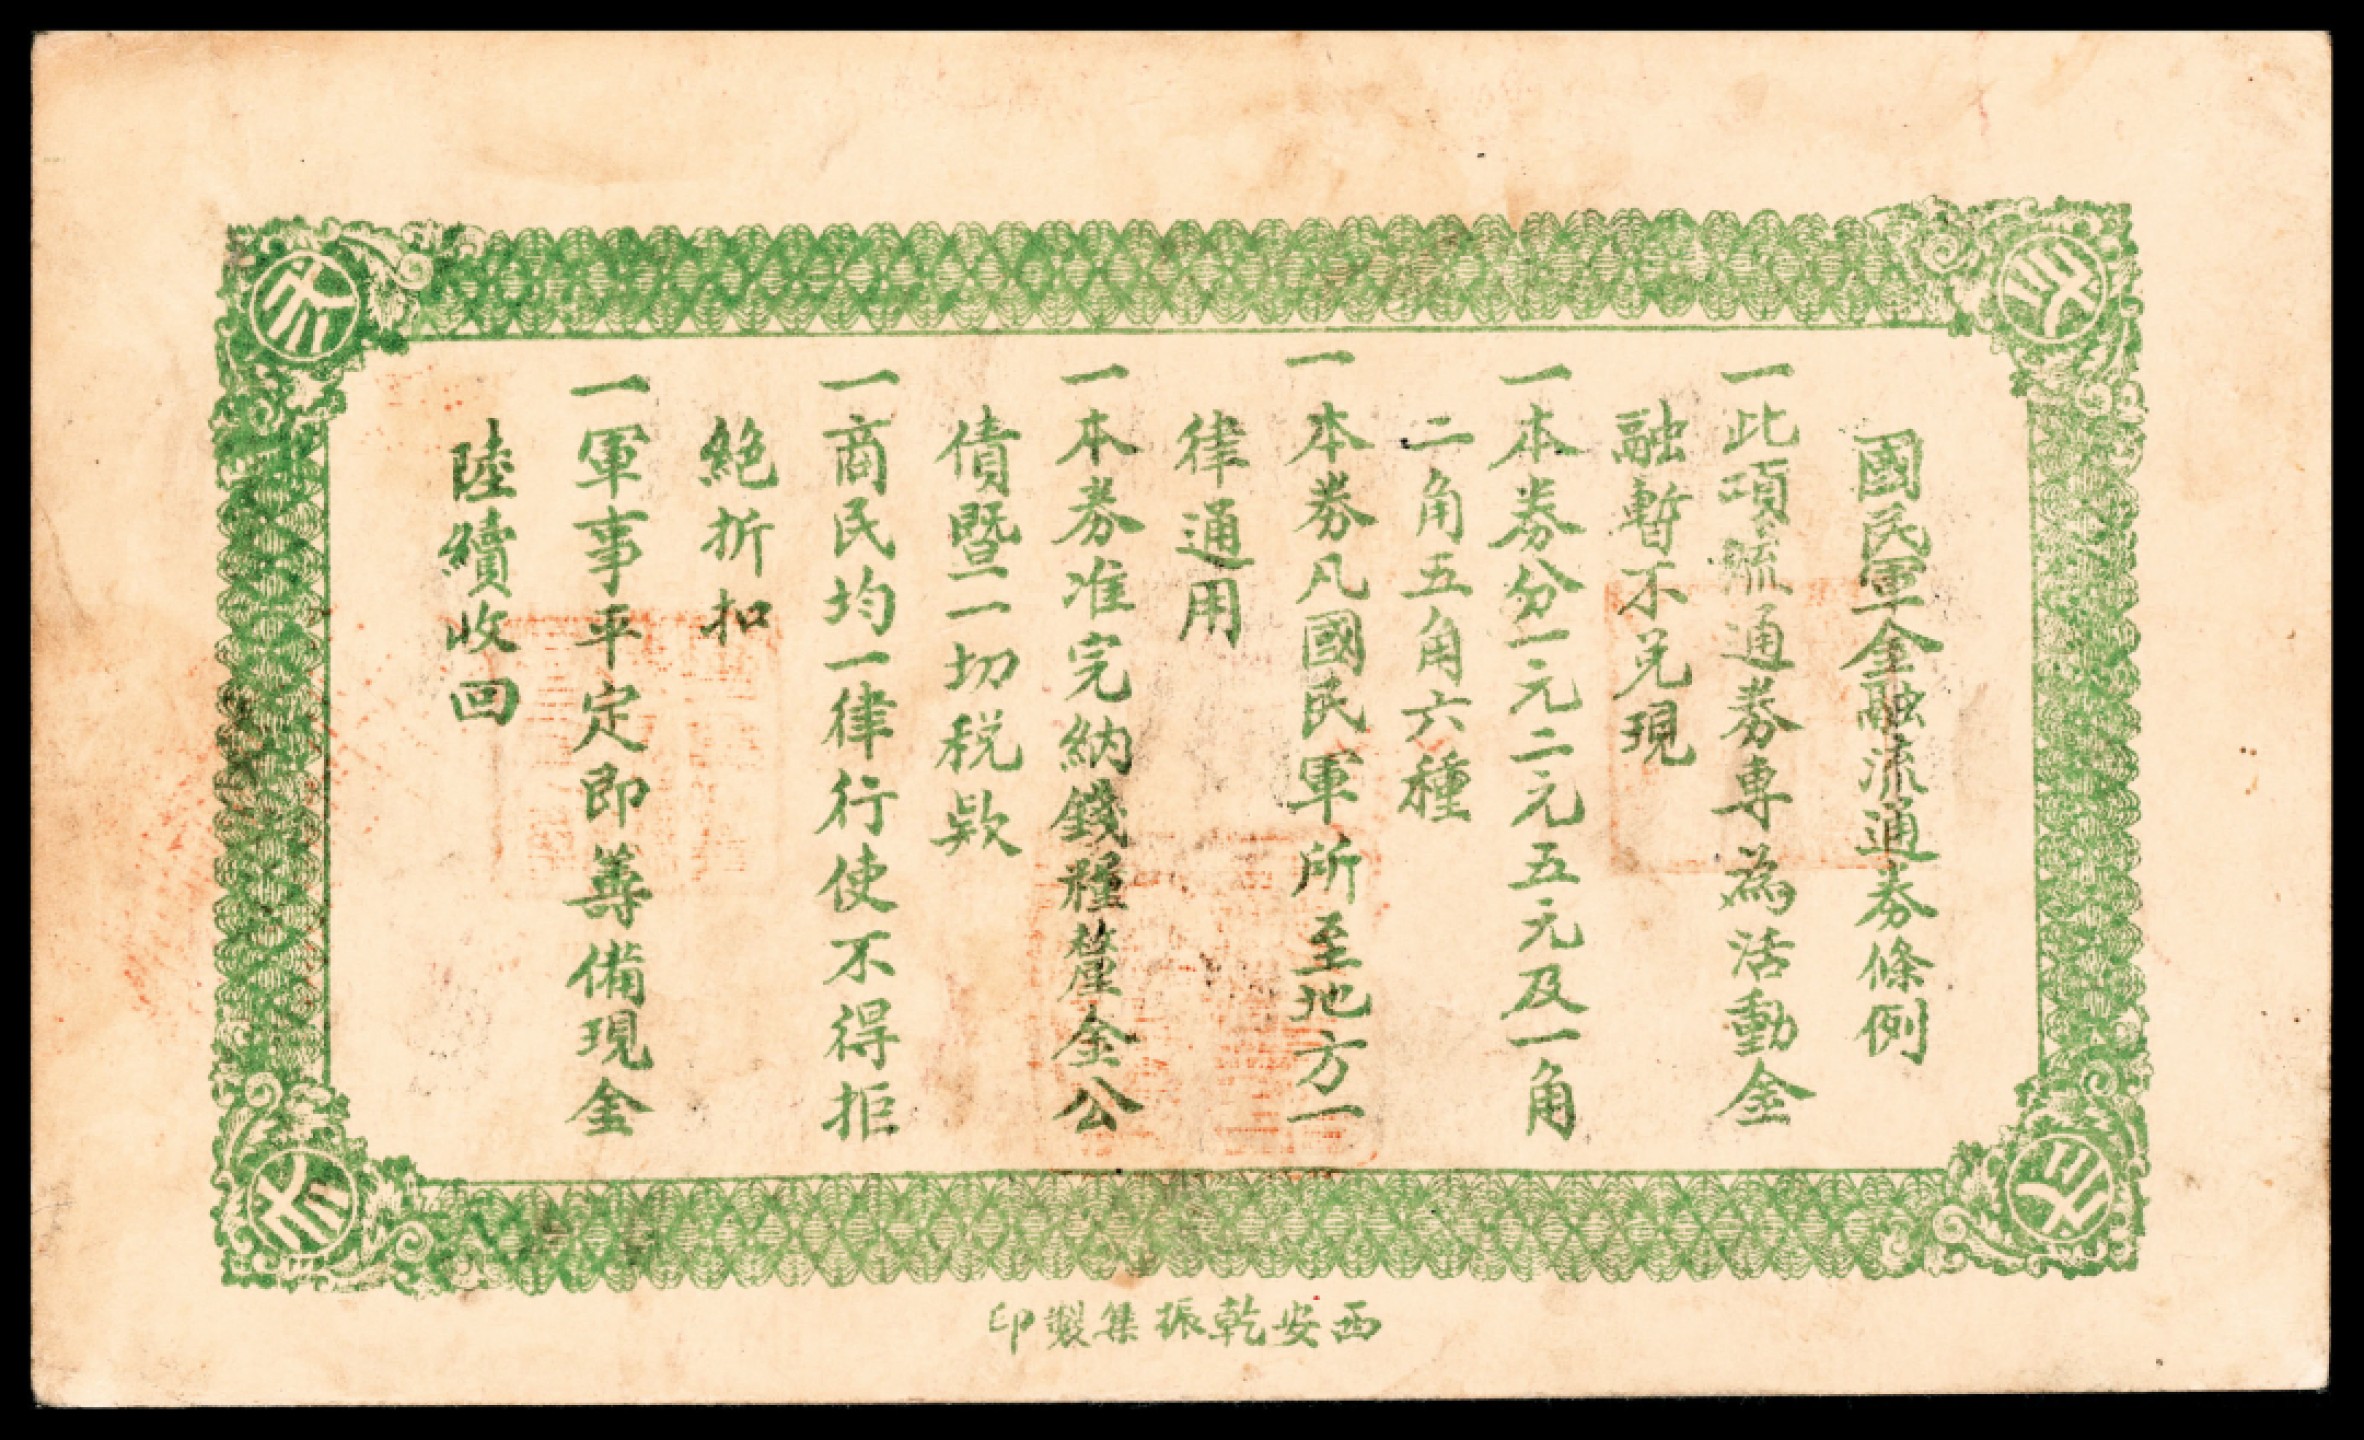 國民軍金融流通券條例
一此項流通券專為活動金
融暫不兑現
一本券分一元二元五元及一角
二角五角六種
一本券凡國民軍所至地方一
律通用
一本券准完納錢糧釐金公
債暨一切税欵
一商民均一律行使不得拒
絶折扣
一軍事平定即籌備現金
陸續收回
西安乾振集製印